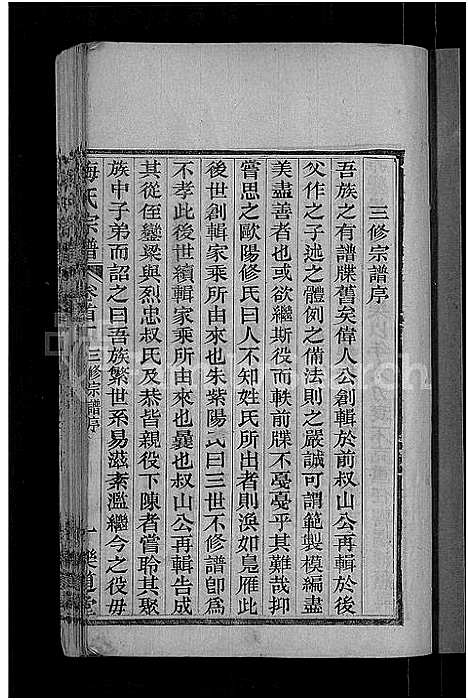 三修宗譜序
吾族之有譜牒舊矣偉人公創輯於前叔山公再輯於後
父作之子述之體例之備法則之嚴誠可謂範製模編盡
美盡善者也或欲繼斯役而軼前牒不戞戞乎其難哉抑
嘗思之歐陽修氏曰人不知姓氏所出者則渙如鳧雁此
後世創輯家乘所由來也朱紫陽氏曰三世不修譜卽為
不孝此後世續輯家乘所由來也曩也叔山公再輯告成
其從侄鑾梁與烈忠叔氏及棻皆親役下陳者嘗聆其聚
族中子弟而詔之曰吾族繁世系易滋紊濫繼今之役毋
梅氏宗譜 卷首 三修宗譜序 一 樂道堂